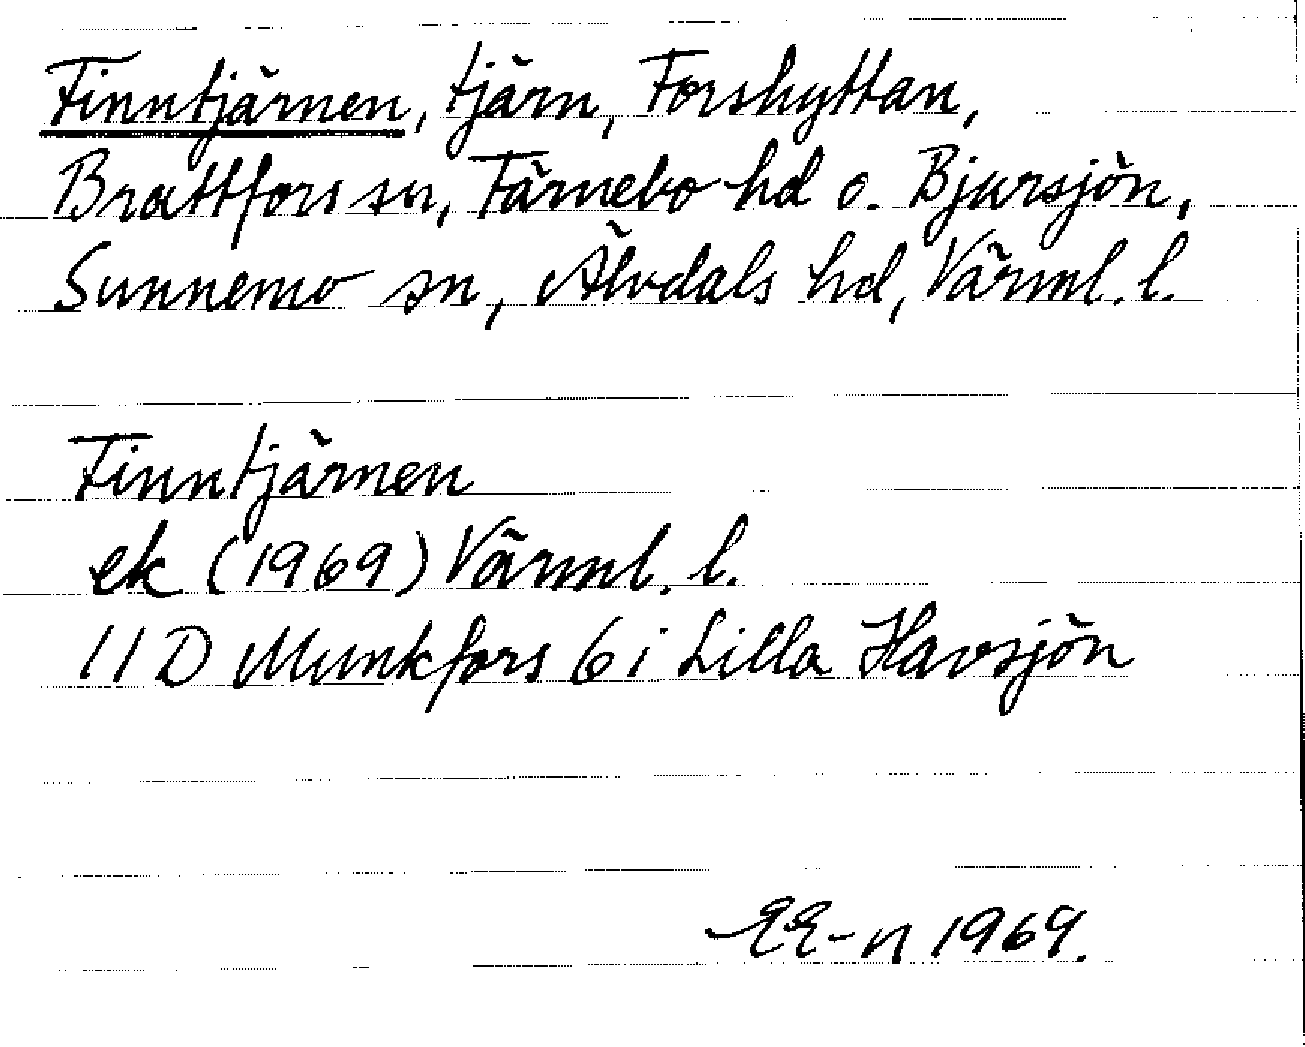 Finntjärnen, tjärn, Forshyttan,
Brattfors sn, Färnebo hd o. Bjursjön,
Sunnemo sn, Älvdals hd, Värml. l.
Finntjärnen
ek (1969) Värml. l.
11 D Munkfors 6 i Lilla Havsjön
EE-n 1969.